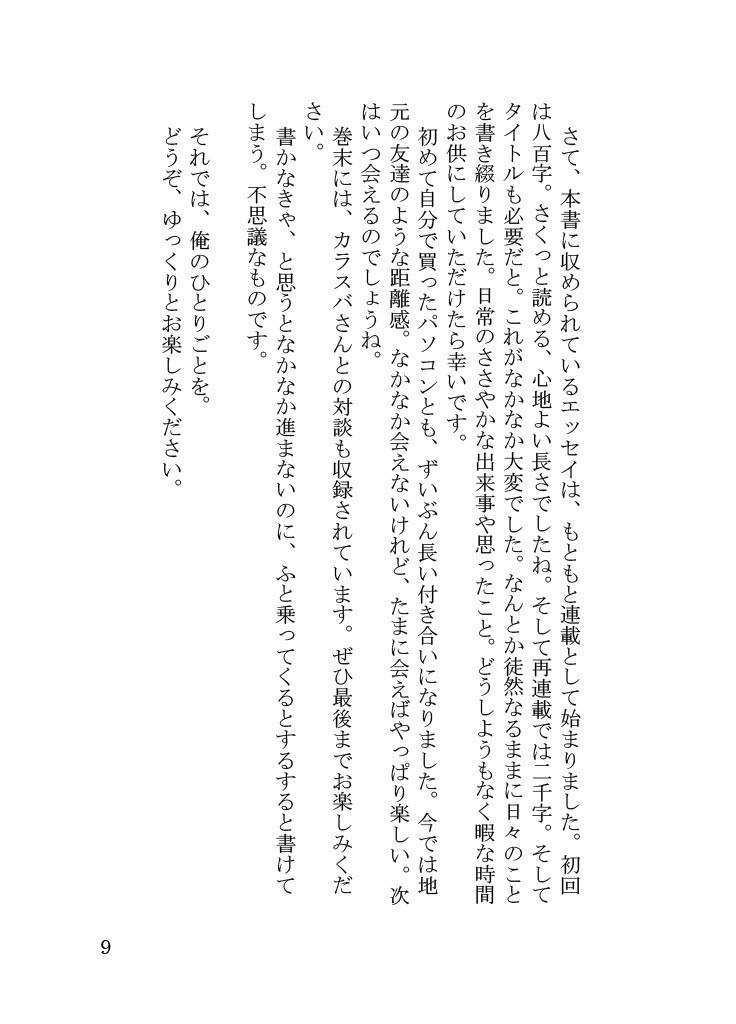 さて、本書に収められているエッセイは、もともと連載として始まりました。初回
は八百字。さくっと読める、心地よい長さでしたね。そして再連載では二千字。そして
タイトルも必要だと。これがなかなか大変でした。なんとか徒然なるままに日々のこと
を書き綴りました。日常のささやかな出来事や思ったこと。どうしようもなく暇な時間
のお供にしていただけたら幸いです。
初めて自分で買ったパソコンとも、ずいぶん長い付き合いになりました。今では地
元の友達のような距離感。なかなか会えないけれど、たまに会えばやっぱり楽しい。次
はいつ会えるのでしょうね。
巻末には、カラスバさんとの対談も収録されています。ぜひ最後までお楽しみくだ
さい。
書かなきゃ、と思うとなかなか進まないのに、ふと乗ってくるとするすると書けて
しまう。不思議なものです。
それでは、俺のひとりごとを。
どうぞ、ゆっくりとお楽しみください。
9